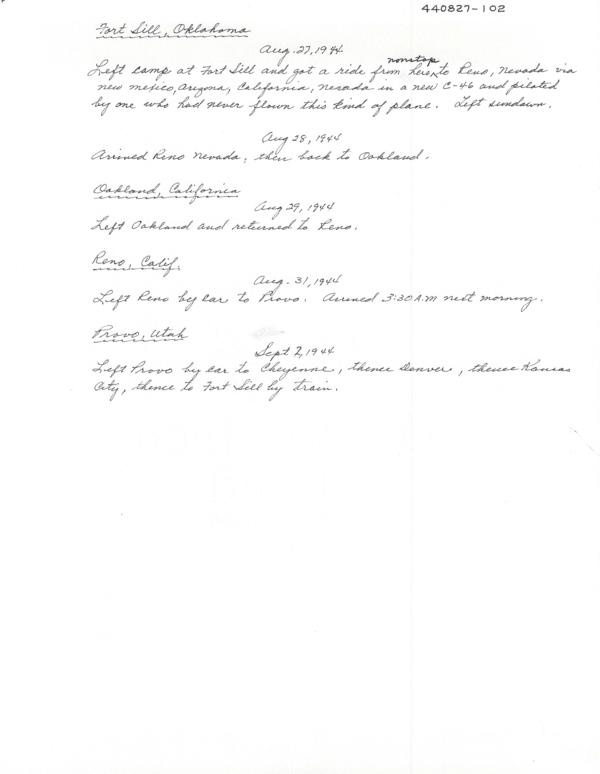 440827-102
Fort Sill, Oklahoma
Aug. 27, 1944
nonstop
Left camp at Fort Sill and got a ride from here, to Reno, Nevada via
new mexico, arizona, California, nevada in a new C-46 and piloted
by one who had never flown this kind of plane. Left sundown.
Aug 28, 1944
Arrived Reno Nevada, then back to Oakland.
Oakland, California
Aug 29, 1944
Left Oakland and returned to Reno.
Reno, Calif.
Aug. 31, 1944
Left Reno by car to Provo. Arrived 3:30 A.M next morning.
Provo, Utah
Sept 2, 1944
Left Provo by car to Cheyenne, thence Denver, thence Kansas
City, thence to Fort Sill by train.